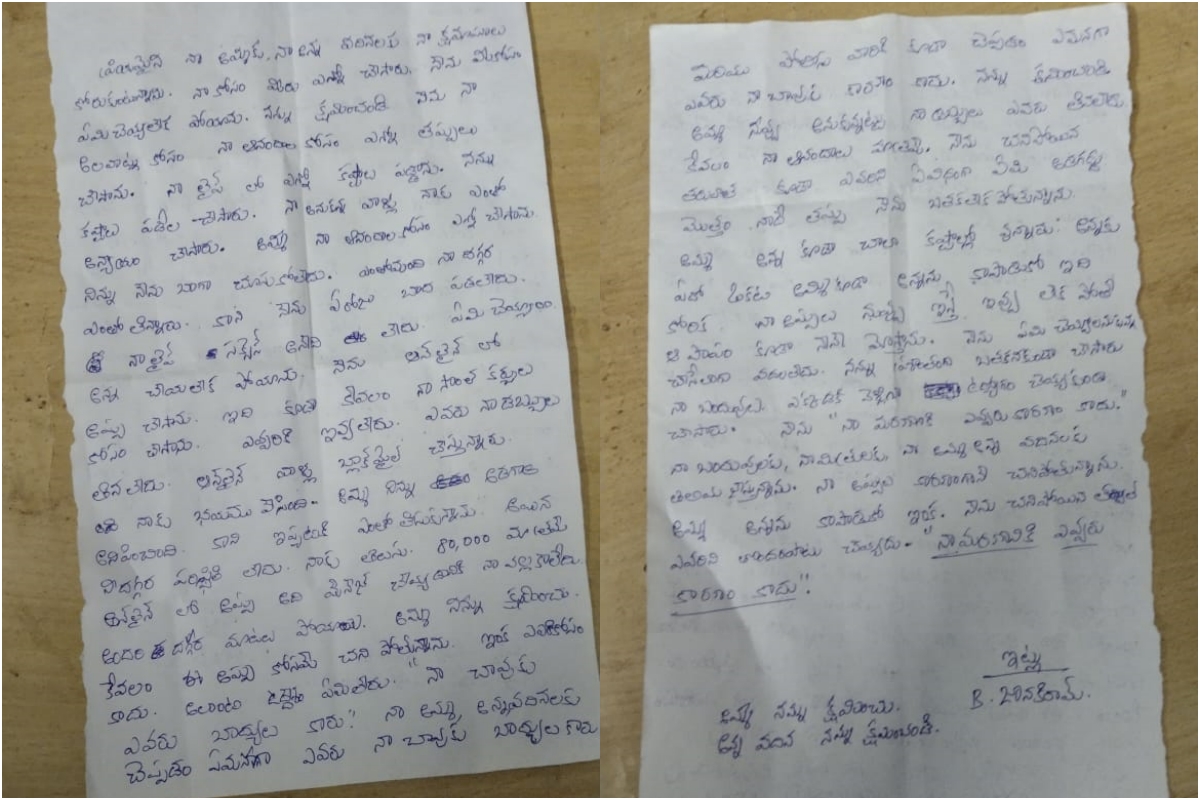 ప్రియమైన నా అమ్మకు, నా అన్న వదినలకు నా క్షమాపణలు
కోరుకుంటున్నాను. నా కోసం మీరు ఎన్నో చేసారు. నేను మీకోసం
ఏమి చెయ్యలేక పోయాను. నన్ను క్షమించండి నేను నా
అలవాట్ల కోసం నా ఆనందాల కోసం ఎన్నో తప్పులు
చేసాను. నా లైఫ్ లో ఎన్నో కష్టాలు పడ్డాను. నన్ను
కష్టాలు పడేల చేసారు. నా అనుకున్న వాళ్లు నాకు ఎంతో
అన్యాయం చేసారు. అమ్మ నా ఆనందాల కోసం ఎన్నో చేసాను
నిన్ను నేను బాగా చూసుకోలేదు. ఎంతోమంది నా దగ్గర
ఎంతో తిన్నారు. కాని నేను ఏరోజు బాద పడలేదు.
నా లైఫ్ సక్సెస్ అనేది లేదు. ఏమి చెయ్యాలం
అన్న చేయలేక పోయాను. నేను ఆన్ లైన్ లో
అప్పు చేసాను. ఇది కూడా కేవలం నా సొంత ఖర్చులు
కోసం చేసాను. ఎవ్వరికి ఇవ్వలేదు. ఎవరు నా డబ్బులు
తినలేదు. ఆన్ లైన్ వాళ్లు బ్లాక్ మైల్ చేస్తున్నారు.
నాకు భయము వేసింది. అమ్మ నిన్ను అడగాల
అనిపించింది. కాని ఇప్పటికి ఎంతో తీసుకున్నాను. అయిన
నీదగ్గర పరిస్థితి లేదు. నాకు తెలుసు. 80,000 మాత్రమే
ఆన్ లైన్ లో అప్పు అది మైనేజ్ చెయ్యడానికి నా వల్ల కాలేదు.
అందరి దగ్గర మాటలు పోయాయి. అమ్మ నిన్ను క్షమించు.
కేవలం ఈ అప్పు కోసమే చని పోతున్నాను. ఇంక ఎవరికోసం
కాదు. అలాంటి ఏమిలేదు. "నా చావుకు
ఎవరు బాద్యులు కారు." నా అమ్మ అన్నవదినలకు
చెప్పడం ఏమనగా ఎవరు నా చావుకు బాద్యులు కారు
మరియు పోలీసు వారికి కూడా చెప్పడం ఏమనగా
ఎవరు నా చావుకు కారణం కాదు. నన్ను క్షమించండి
అమ్మ నువ్వు అనుకున్నట్టు నా డబ్బులు ఎవరు తినలేదు
కేవలం నా ఆనందాలు మాత్రమే. నేను చనిపోయిన
తరువాత కూడా ఎవరిని ఏవిధంగా ఏమి అడగద్దు
మొత్తం నాదే తప్పు నేను బతకలేక పోతున్నాను.
అమ్మ అన్న కూడా చాలా కష్టాల్లో వున్నారు. అన్నకు
ఏదో ఒకటి అమ్మి కూడా అన్నను కాపాడుకో ఇది
కోరిక. నా అప్పులు నువ్వు ఇస్తే ఇవ్వు లేక పోతే
ఆ పాపం కూడా నేనే మోస్తాను. నేను ఏమి చెయ్యాలనుకున్న
చేసేలాగా వదలలేదు. నన్ను బతకనకుండా చేసారు
నా బందువులు. ఎక్కడికి వెళ్లిన ఉద్యోగం చెయ్యకుండా
చేసారు. నేను "నా మరణానికి ఎవ్వరు కారణం కాదు."
నా బందువులకు, నా మిత్రులకు, నా అమ్మ అన్న వదినలకు
తెలియచేస్తున్నాను. నా అప్పుల కారణంగానే చనిపోతున్నాను.
అమ్మ అన్నను కాపాడుకో ఇంక. నేను చనిపోయిన తర్వాత
ఎవరిని తొందరపాటు చెయ్యద్దు. "నా మరణానికి ఎవ్వరు
కారణం కాదు".
ఇట్లు
B. జానకిరామ్.
అమ్మ నన్ను క్షమించు.
అన్న వదిన నన్ను క్షమించండి.